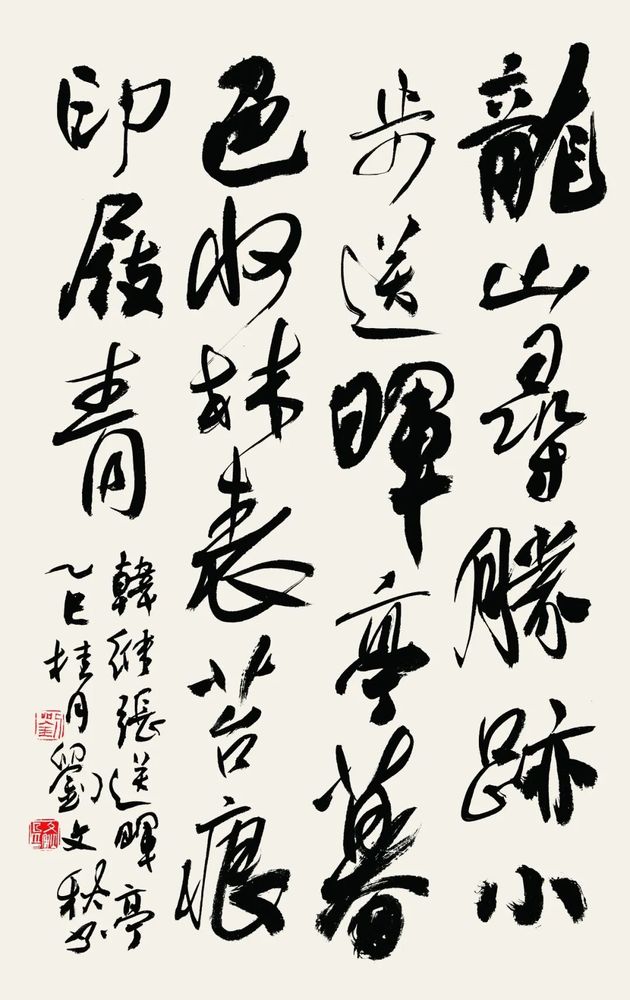 龍山尋勝跡小
步送暉亭暮
色收林表苔痕
印屐青
韓繼張送暉亭
乙巳桂月劉文秋書